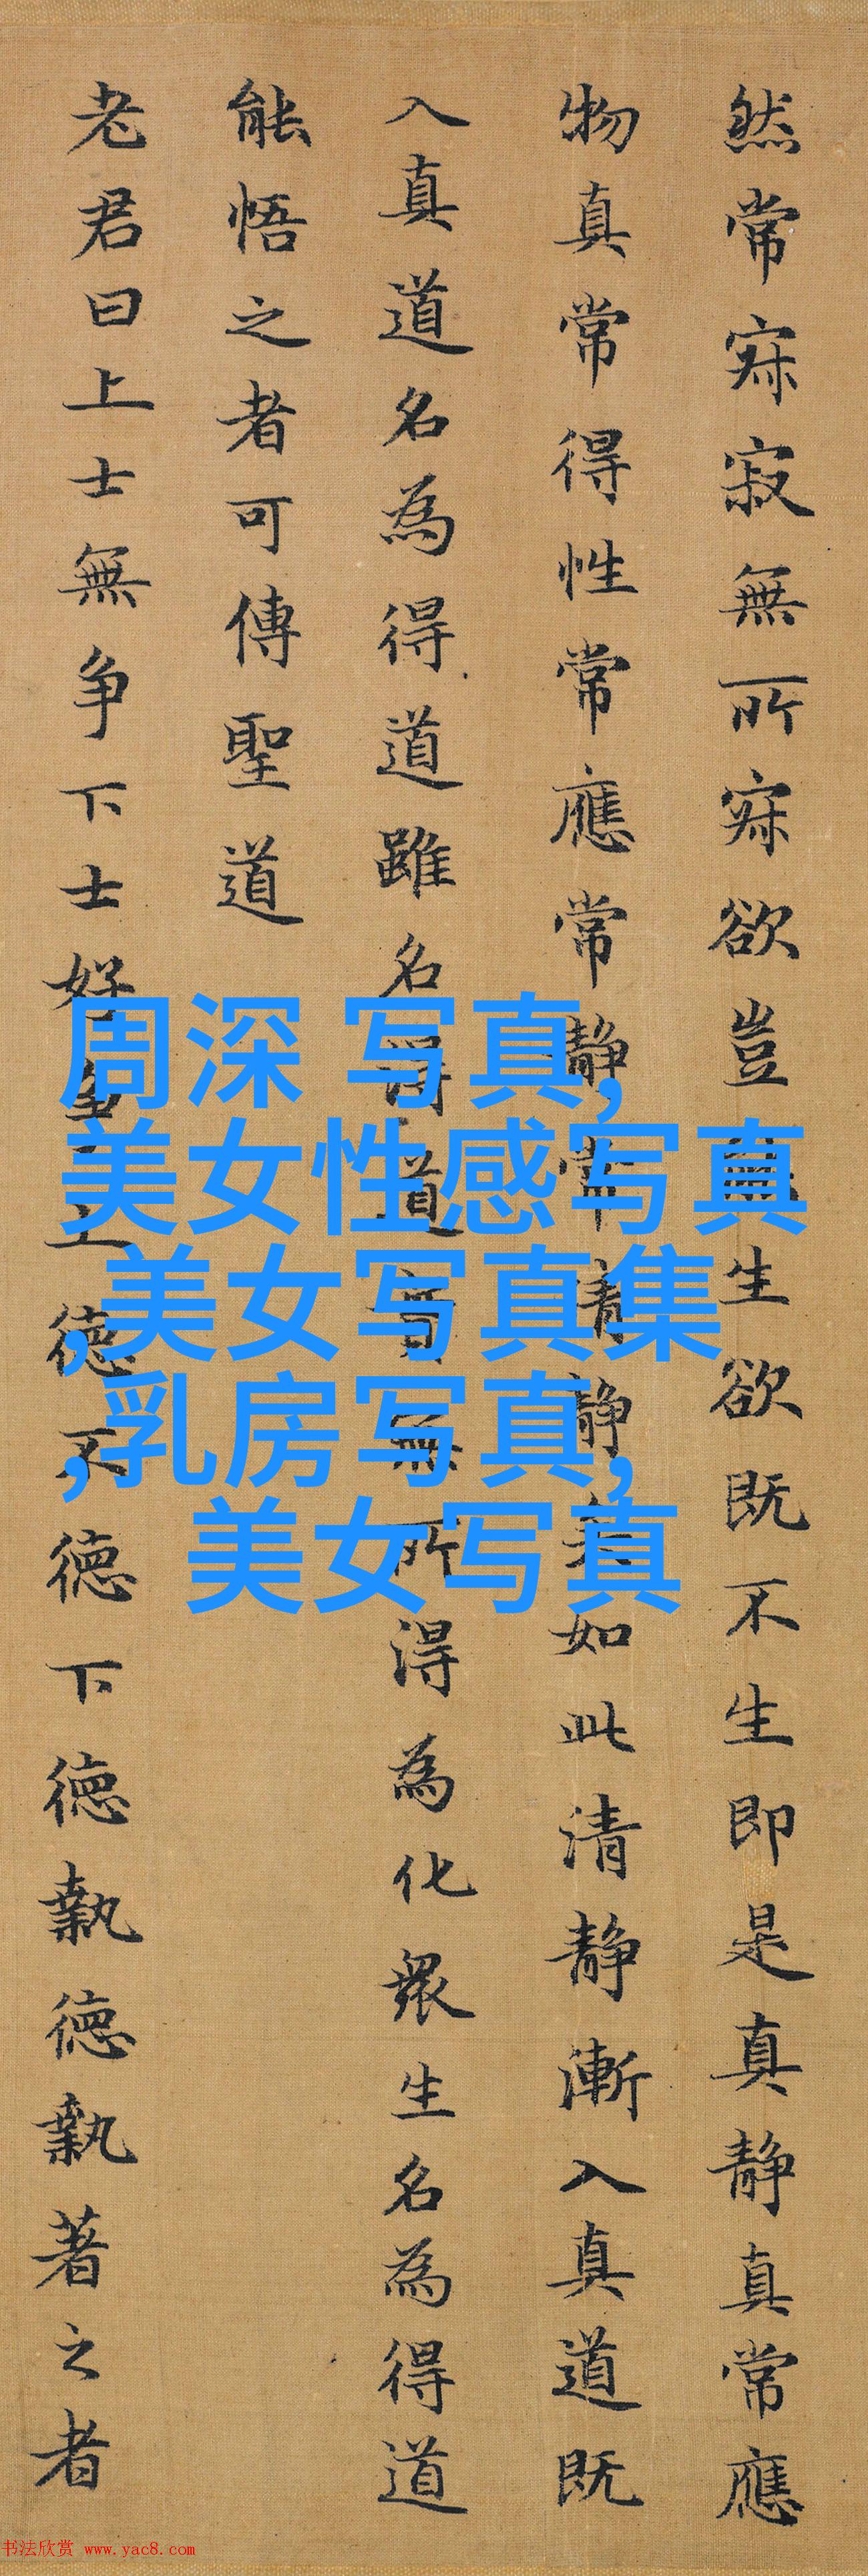 然常寂寂無所寂欲豈生欲既不生即是真静真常應
物真常得性常應常静常清静矣如此清静漸入真道既
入真道名為得道雖名得道實無所得為化衆生名為得道
能悟之者可傳聖道
老君曰上士無争下士好争上德不德下德執德執著之者
周深 写真,
美女性感写真
,美女写真集
,乳房写真,
美女写真
书法欣赏 www.yac8.com